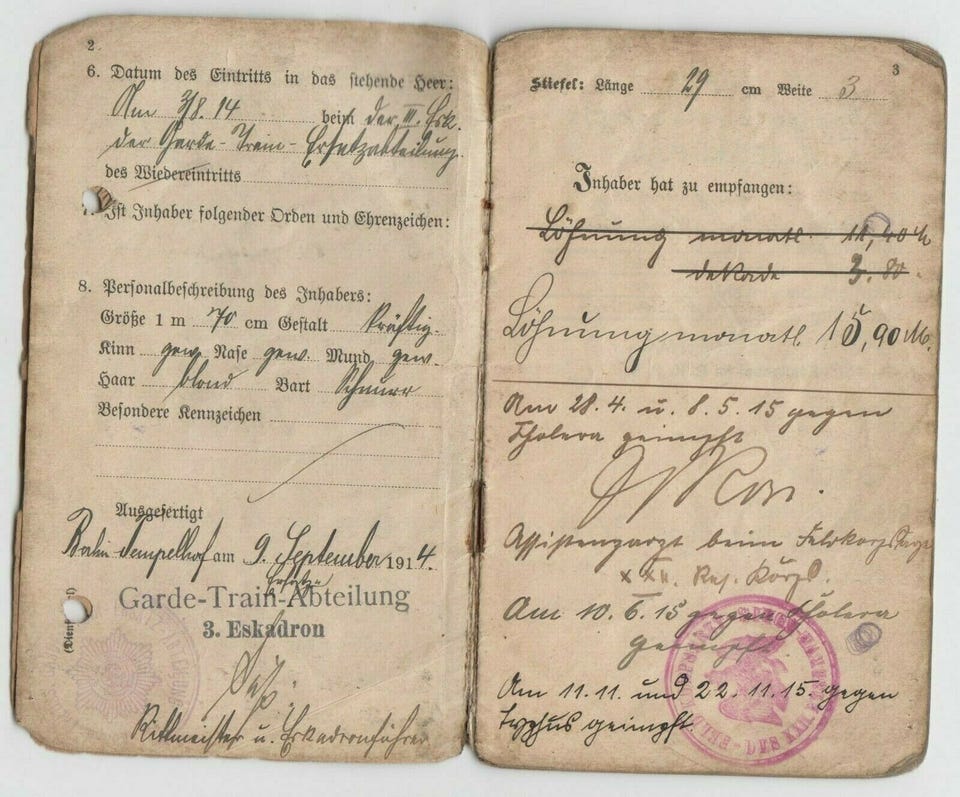 2
6. Datum des Eintritts in das stehende Heer:
Am 3/8. 14 beim der III. Esk.
der Garde-Train-Ersatzabteilung.
des Wiedereintritts
7. Ist Inhaber folgender Orden und Ehrenzeichen:
8. Personalbeschreibung des Inhabers:
Größe 1 m 70 cm Gestalt kräftig.
Kinn gew. Nase gew. Mund gew.
Haar blond Bart Schnurr
Besondere Kennzeichen
Ausgefertigt
Berlin-Tempelhof am 9. September 1914.
Ersatz
Garde-Train-Abteilung
3. Eskadron
Rittmeister u. Eskadronführer
3
Stiefel: Länge 29 cm Weite 3
Inhaber hat zu empfangen:
Löhnung monatl. 11,40
dekade 3.80
Löhnung monatl. 15,90 M.
Am 28. 4. u. 8. 5. 15 gegen
Cholera geimpft
Assistenzarzt beim
XXII. Res. Korps.
Am 10. 6. 15 gegen Cholera
geimpft
Am 11. 11. und 22. 11. 15. gegen
Typhus geimpft.